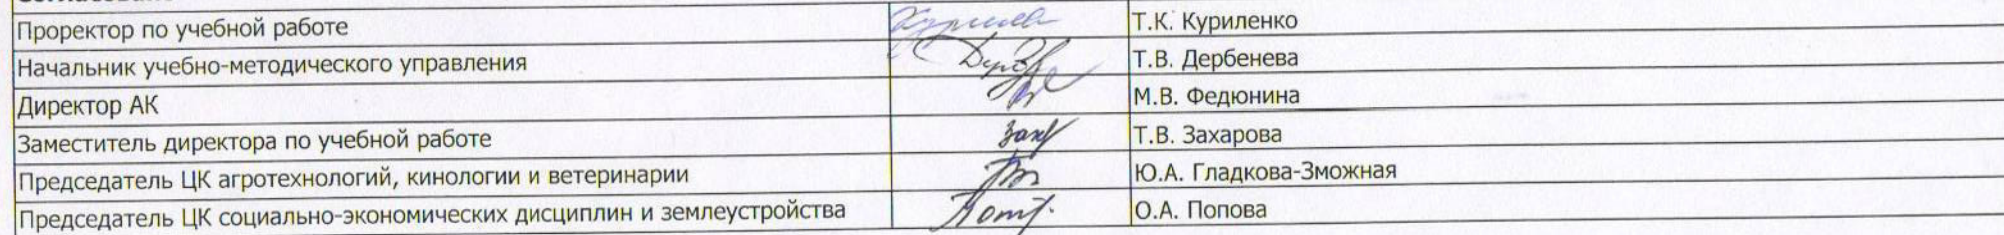 Проректор по учебной работе Т.К. Куриленко
Начальник учебно-методического управления Т.В. Дербенева
Директор АК М.В. Федюнина
Заместитель директора по учебной работе Т.В. Захарова
Председатель ЦК агротехнологий, кинологии и ветеринарии Ю.А. Гладкова-Зможная
Председатель ЦК социально-экономических дисциплин и землеустройства О.А. Попова